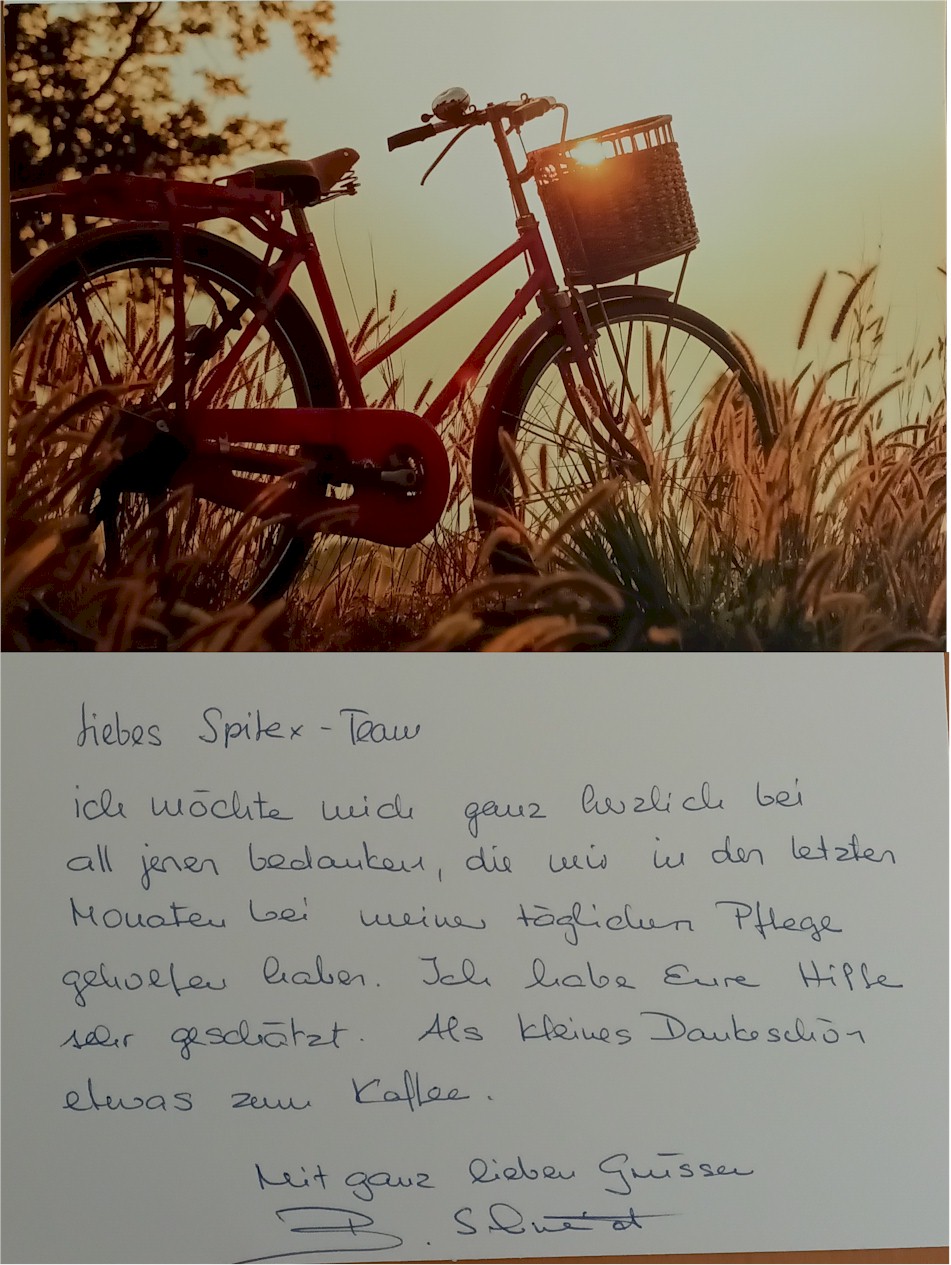 Liebes Spitex-Team
ich möchte mich ganz herzlich bei
all jenen bedanken, die mir in den letzten
Monaten bei meiner täglichen Pflege
geholfen haben. Ich habe Eure Hilfe
sehr geschätzt. Als kleines Dankeschön
etwas zum Kaffee.
Mit ganz lieben Grüssen
B. Schmid